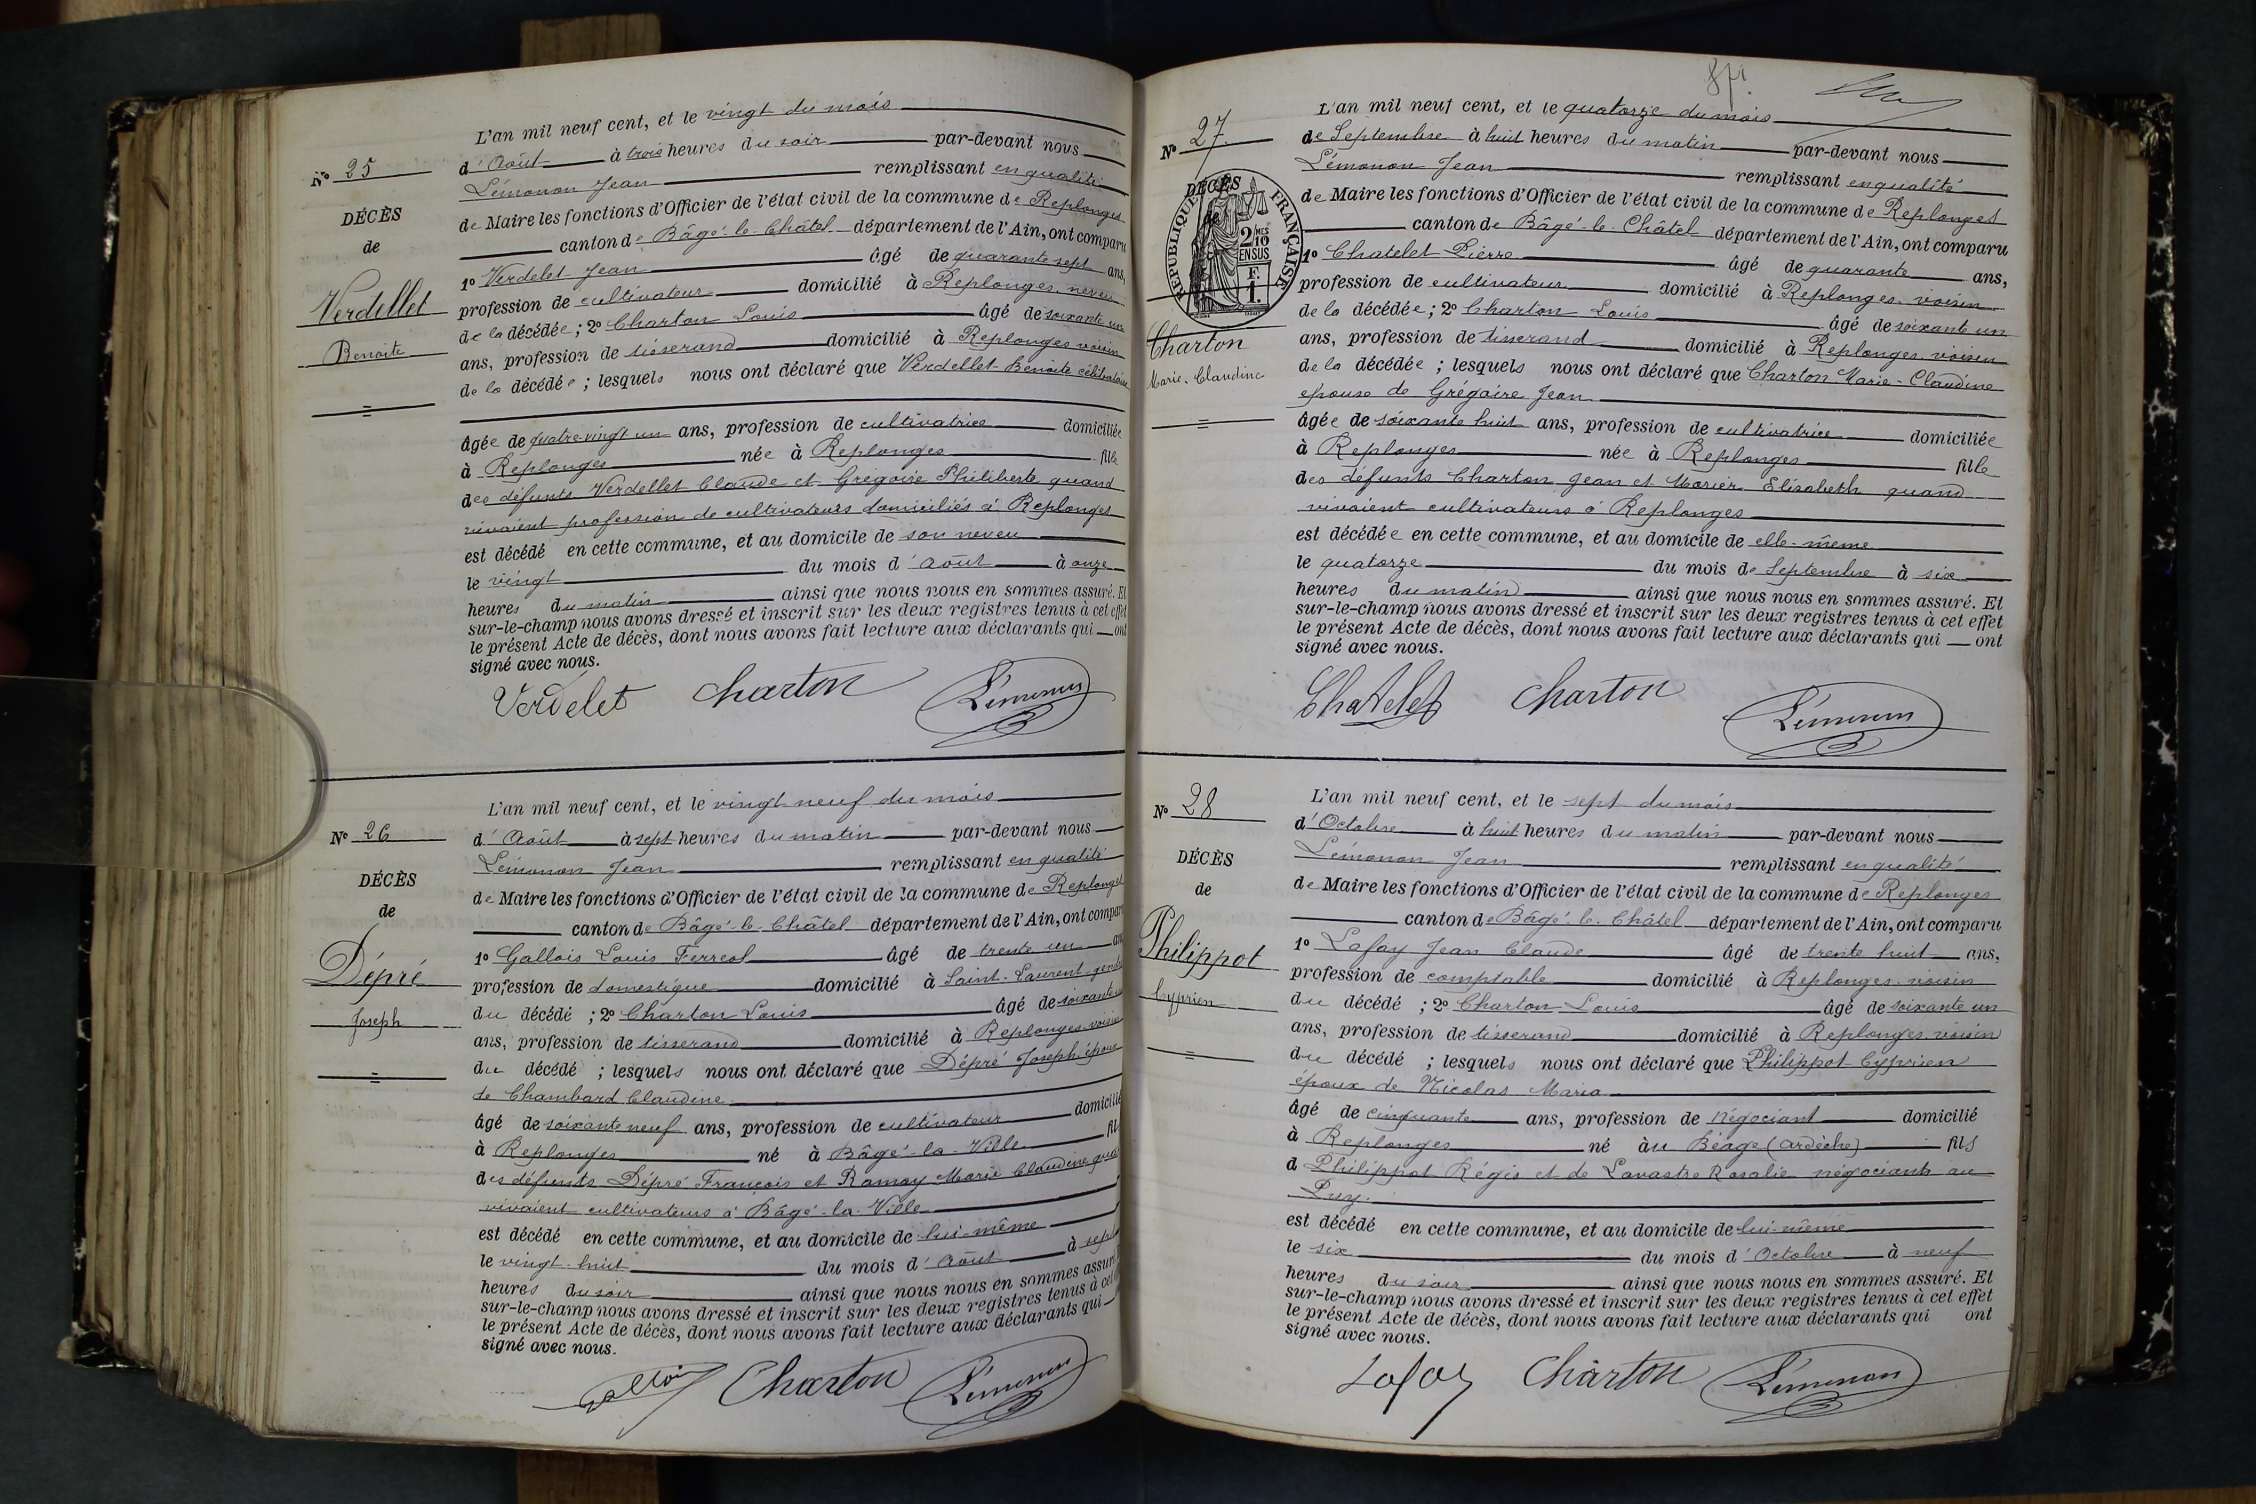 L'an mil neuf cent, et le vingt du mois
d'Août à trois heures du soir par-devant nous
Lémonon Jean remplissant en qualité
de Maire les fonctions d'Officier de l'état civil de la commune de Replonges
canton de Bâgé-le-Châtel département de l'Ain, ont comparu
1º Verdelet Jean âgé de quarante sept ans,
profession de cultivateur domicilié à Replonges, neveu
de la décédée ; 2º Charton Louis âgé de soixante un
ans, profession de tisserand domicilié à Replonges voisin
de la décédée ; lesquels nous ont déclaré que Verdellet Benoite célibataire
âgée de quatre-vingt un ans, profession de cultivatrice domiciliée
à Replonges née à Replonges fille
des défunts Verdellet Claude et Grégoire Philiberte quand
vivaient profession de cultivateurs domiciliés à Replonges
est décédé en cette commune, et au domicile de son neveu
le vingt du mois d'août à onze
heures du matin ainsi que nous nous en sommes assuré. Et
sur-le-champ nous avons dressé et inscrit sur les deux registres tenus à cet effet
le présent Acte de décès, dont nous avons fait lecture aux déclarants qui ont
signé avec nous.
Nº 25
DÉCÈS
de
Verdellet
Benoite
Verdelet Charton Lémonon
L'an mil neuf cent, et le vingt neuf du mois
d'Août à sept heures du matin par-devant nous
Lémonon Jean remplissant en qualité
de Maire les fonctions d'Officier de l'état civil de la commune de Replonges
canton de Bâgé-le-Châtel département de l'Ain, ont comparu
1º Gallois Louis Ferreol âgé de trente un ans
profession de domestique domicilié à Saint-Laurent gendre
du décédé ; 2º Charton Louis âgé de soixante un
ans, profession de tisserand domicilié à Replonges voisin
du décédé ; lesquels nous ont déclaré que Dépré Joseph époux
de Chambard Claudine
âgé de soixante neuf ans, profession de cultivateur domicilié
à Replonges né à Bâgé-la-Ville fils
des défunts Dépré François et Ramay Marie Claudine quand
vivaient cultivateurs à Bâgé-la-Ville
est décédé en cette commune, et au domicile de lui-même
le vingt-huit du mois d'août à sept
heures du soir ainsi que nous nous en sommes assuré.
sur-le-champ nous avons dressé et inscrit sur les deux registres tenus à cet
le présent Acte de décès, dont nous avons fait lecture aux déclarants qui
signé avec nous.
Nº 26
DÉCÈS
de
Dépré
Joseph
Gallois Charton Lémonon
L'an mil neuf cent, et le quatorze du mois
de Septembre à huit heures du matin par-devant nous
Lémonon Jean remplissant en qualité
de Maire les fonctions d'Officier de l'état civil de la commune de Replonges
canton de Bâgé-le-Châtel département de l'Ain, ont comparu
1º Chatelet Pierre âgé de quarante ans,
profession de cultivateur domicilié à Replonges voisin
de la décédée ; 2º Charton Louis âgé de soixante un
ans, profession de tisserand domicilié à Replonges voisin
de la décédée ; lesquels nous ont déclaré que Charton Marie-Claudine
épouse de Grégoire Jean
âgée de soixante huit ans, profession de cultivatrice domiciliée
à Replonges née à Replonges fille
des défunts Charton Jean et Morier Elisabeth quand
vivaient cultivateurs à Replonges
est décédée en cette commune, et au domicile de elle-même
le quatorze du mois de Septembre à six
heures du matin ainsi que nous nous en sommes assuré. Et
sur-le-champ nous avons dressé et inscrit sur les deux registres tenus à cet effet
le présent Acte de décès, dont nous avons fait lecture aux déclarants qui ont
signé avec nous.
Nº 27
DÉCÈS
de
RÉPUBLIQUE FRANÇAISE
2/10 EN SUS
F.
1.
Charton
Marie-Claudine
Chatelet Charton Lémonon
L'an mil neuf cent, et le sept du mois
d'Octobre à huit heures du matin par-devant nous
Lémonon Jean remplissant en qualité
de Maire les fonctions d'Officier de l'état civil de la commune de Replonges
canton de Bâgé-le-Châtel département de l'Ain, ont comparu
1º Lafay Jean Claude âgé de trente huit ans,
profession de comptable domicilié à Replonges voisin
du décédé ; 2º Charton Louis âgé de soixante un
ans, profession de tisserand domicilié à Replonges voisin
du décédé ; lesquels nous ont déclaré que Philippot Cyprien
époux de Nicolas Maria
âgé de cinquante ans, profession de négociant domicilié
à Replonges né au Béage (Ardèche) fils
d Philippot Régis et de Lavastre Rosalie négociants au
Puy.
est décédé en cette commune, et au domicile de lui-même
le six du mois d'Octobre à neuf
heures du soir ainsi que nous nous en sommes assuré. Et
sur-le-champ nous avons dressé et inscrit sur les deux registres tenus à cet effet
le présent Acte de décès, dont nous avons fait lecture aux déclarants qui ont
signé avec nous.
Nº 28
DÉCÈS
de
Philippot
Cyprien
Lafay Charton Lémonon